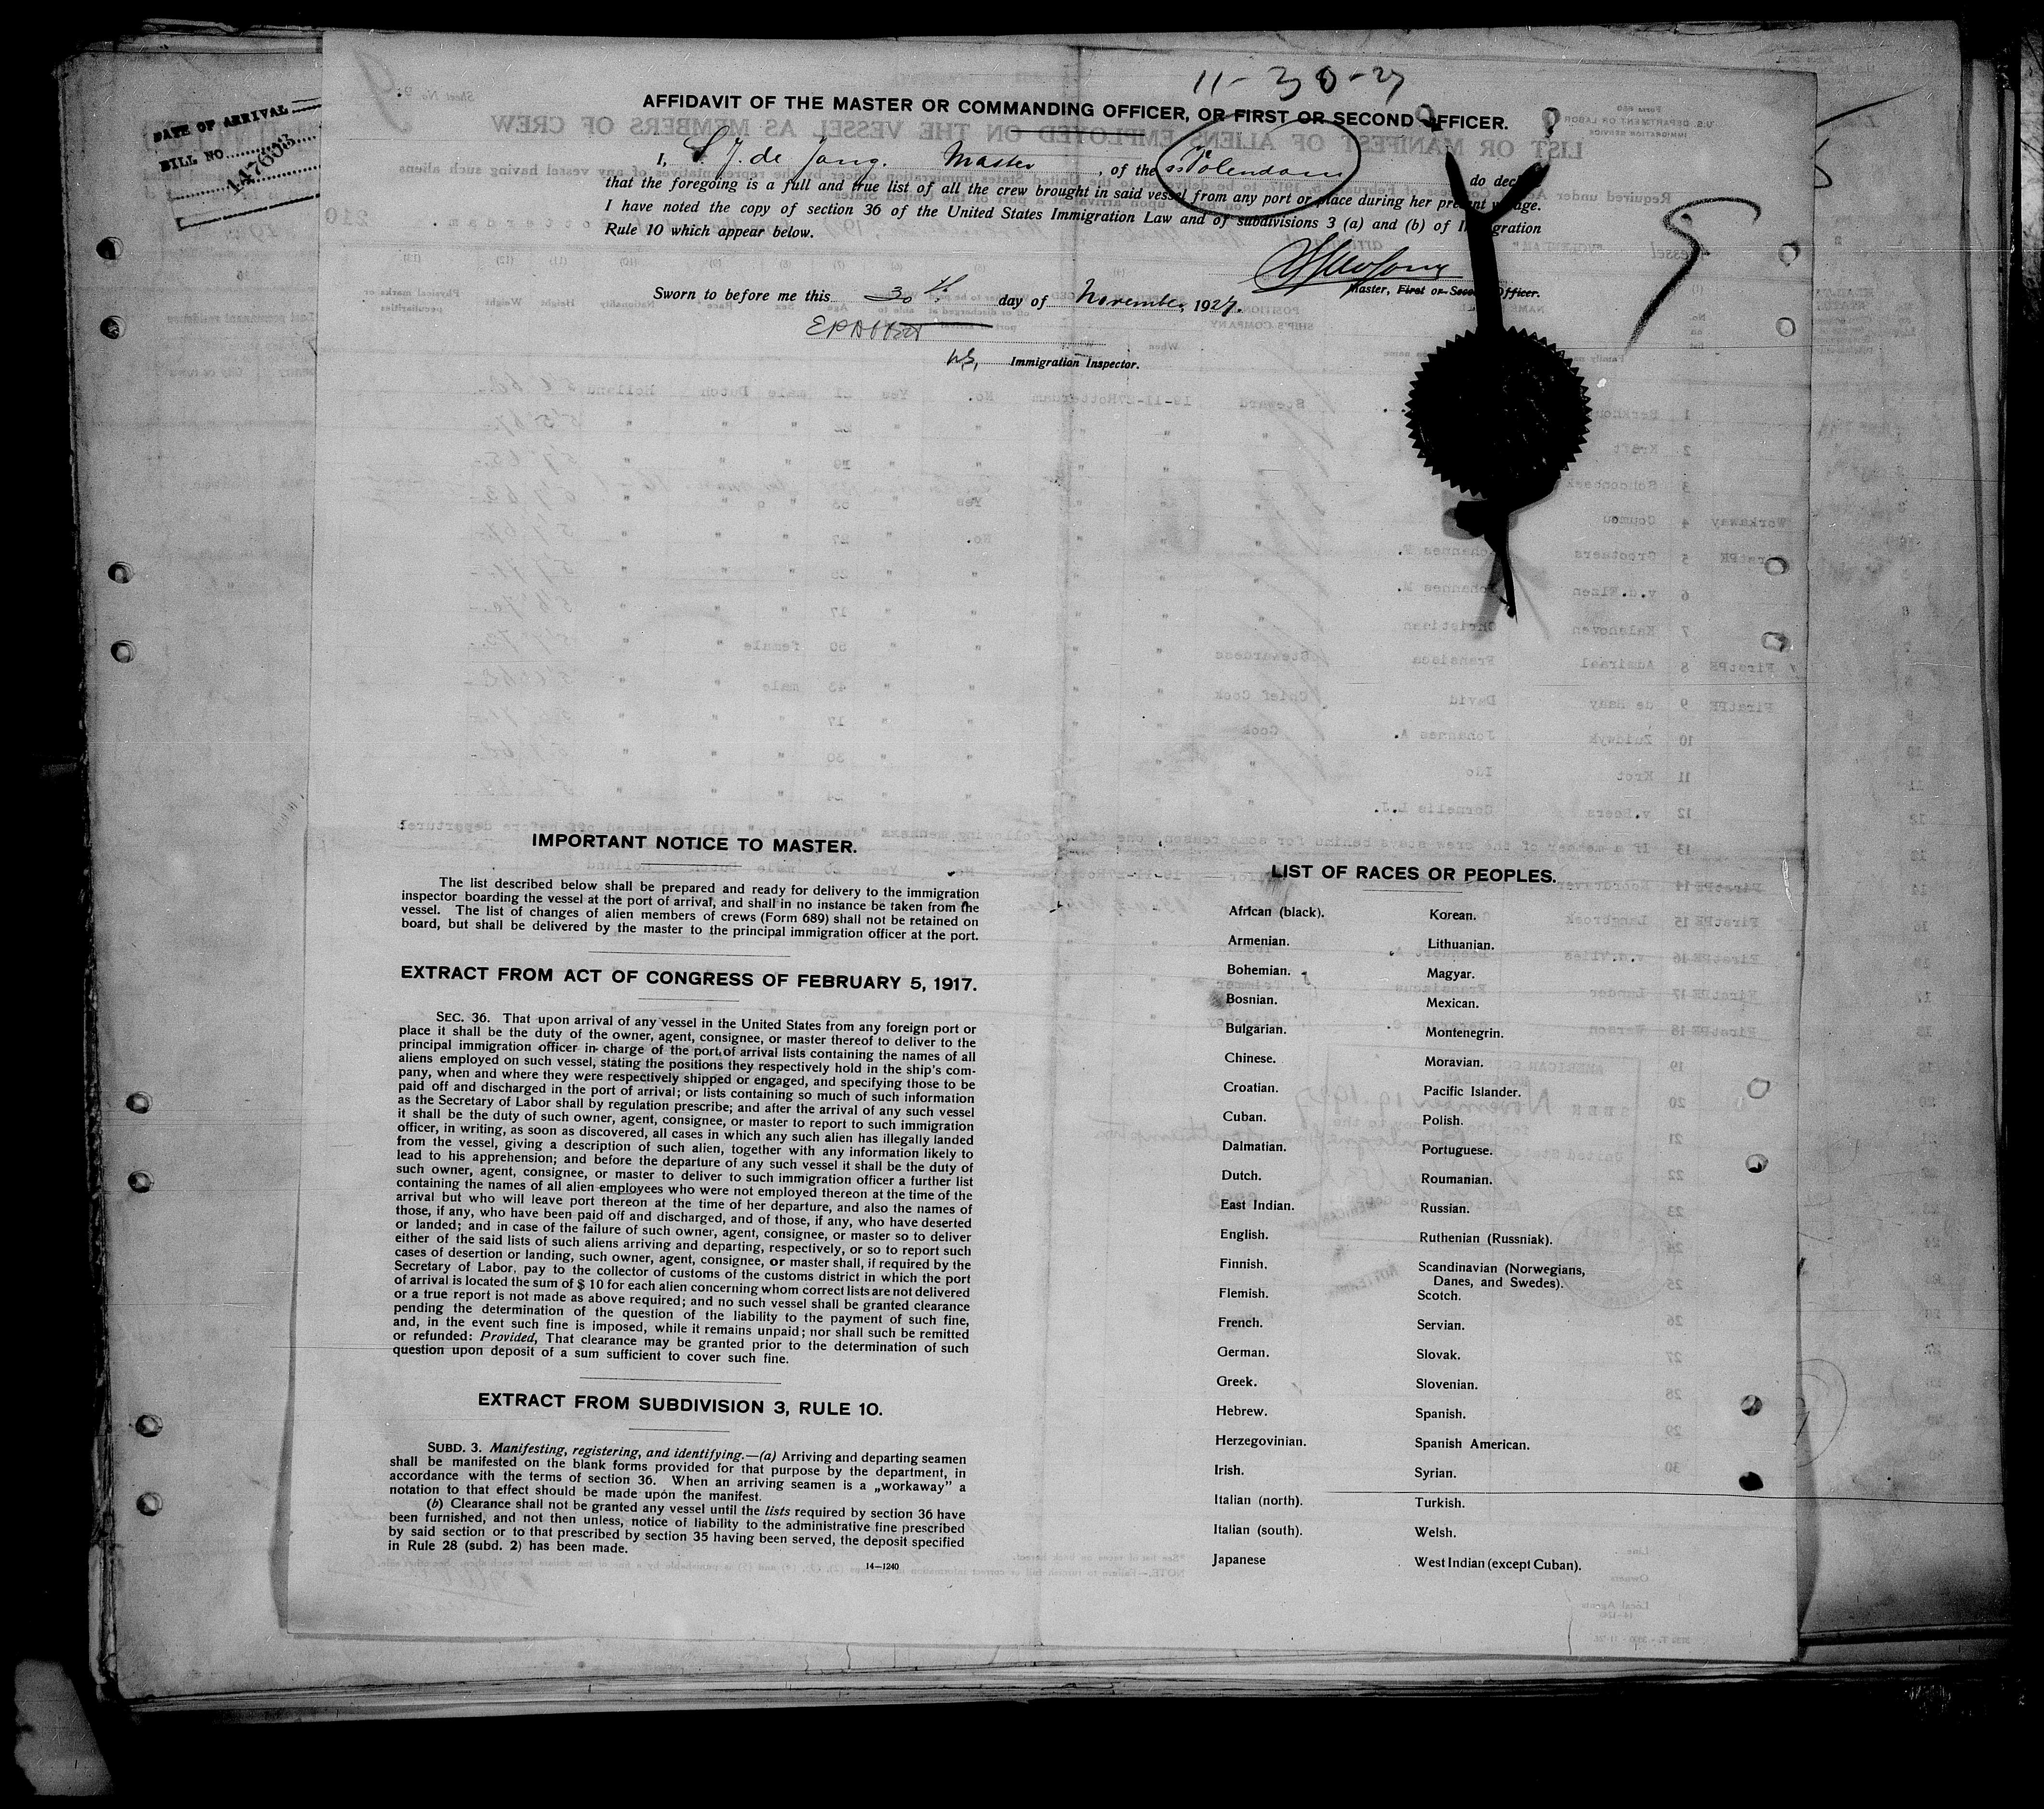 11-30-27
DATE OF ARRIVAL
BILL NO.
147603
AFFIDAVIT OF THE MASTER OR COMMANDING OFFICER, OR FIRST OR SECOND OFFICER.
I, S. J. de Jong. Master, of the ss Volendam do decl
that the foregoing is a full and true list of all the crew brought in said vessel from any port or place during her present voyage.
I have noted the copy of section 36 of the United States Immigration Law and of subdivisions 3 (a) and (b) of Immigration
Rule 10 which appear below.
Master, First or Second Officer.
Sworn to before me this 30th day of November, 1927.
Immigration Inspector.
IMPORTANT NOTICE TO MASTER.
The list described below shall be prepared and ready for delivery to the immigration
inspector boarding the vessel at the port of arrival, and shall in no instance be taken from the
vessel. The list of changes of alien members of crews (Form 689) shall not be retained on
board, but shall be delivered by the master to the principal immigration officer at the port.
EXTRACT FROM ACT OF CONGRESS OF FEBRUARY 5, 1917.
SEC. 36. That upon arrival of any vessel in the United States from any foreign port or
place it shall be the duty of the owner, agent, consignee, or master thereof to deliver to the
principal immigration officer in charge of the port of arrival lists containing the names of all
aliens employed on such vessel, stating the positions they respectively hold in the ship's com-
pany, when and where they were respectively shipped or engaged, and specifying those to be
paid off and discharged in the port of arrival; or lists containing so much of such information
as the Secretary of Labor shall by regulation prescribe; and after the arrival of any such vessel
it shall be the duty of such owner, agent, consignee, or master to report to such immigration
officer, in writing, as soon as discovered, all cases in which any such alien has illegally landed
from the vessel, giving a description of such alien, together with any information likely to
lead to his apprehension; and before the departure of any such vessel it shall be the duty of
such owner, agent, consignee, or master to deliver to such immigration officer a further list
containing the names of all alien employees who were not employed thereon at the time of the
arrival but who will leave port thereon at the time of her departure, and also the names of
those, if any, who have been paid off and discharged, and of those, if any, who have deserted
or landed; and in case of the failure of such owner, agent, consignee, or master so to deliver
either of the said lists of such aliens arriving and departing, respectively, or so to report such
cases of desertion or landing, such owner, agent, consignee, or master shall, if required by the
Secretary of Labor, pay to the collector of customs of the customs district in which the port
of arrival is located the sum of $ 10 for each alien concerning whom correct lists are not delivered
or a true report is not made as above required; and no such vessel shall be granted clearance
pending the determination of the question of the liability to the payment of such fine,
and, in the event such fine is imposed, while it remains unpaid; nor shall such be remitted
or refunded: Provided, That clearance may be granted prior to the determination of such
question upon deposit of a sum sufficient to cover such fine.
EXTRACT FROM SUBDIVISION 3, RULE 10.
SUBD. 3. Manifesting, registering, and identifying.—(a) Arriving and departing seamen
shall be manifested on the blank forms provided for that purpose by the department, in
accordance with the terms of section 36. When an arriving seamen is a „workaway" a
notation to that effect should be made upon the manifest.
(b) Clearance shall not be granted any vessel until the lists required by section 36 have
been furnished, and not then unless, notice of liability to the administrative fine prescribed
by said section or to that prescribed by section 35 having been served, the deposit specified
in Rule 28 (subd. 2) has been made.
14—1240
LIST OF RACES OR PEOPLES.
African (black).
Armenian.
Bohemian.
Bosnian.
Bulgarian.
Chinese.
Croatian.
Cuban.
Dalmatian.
Dutch.
East Indian.
English.
Finnish.
Flemish.
French.
German.
Greek.
Hebrew.
Herzegovinian.
Irish.
Italian (north).
Italian (south).
Japanese
Korean.
Lithuanian.
Magyar.
Mexican.
Montenegrin.
Moravian.
Pacific Islander.
Polish.
Portuguese.
Roumanian.
Russian.
Ruthenian (Russniak).
Scandinavian (Norwegians,
Danes, and Swedes).
Scotch.
Servian.
Slovak.
Slovenian.
Spanish.
Spanish American.
Syrian.
Turkish.
Welsh.
West Indian (except Cuban).